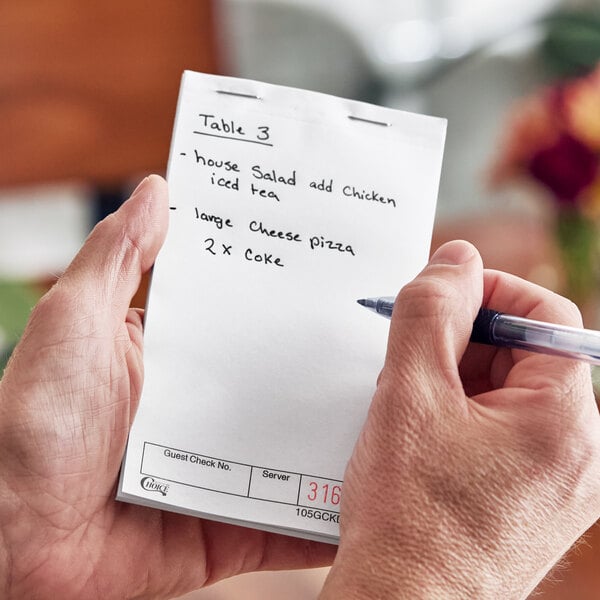 Table 3
- house Salad add Chicken
iced tea
- large Cheese pizza
2 x Coke
Guest Check No.
Server
CHOICE
316
105GCKD